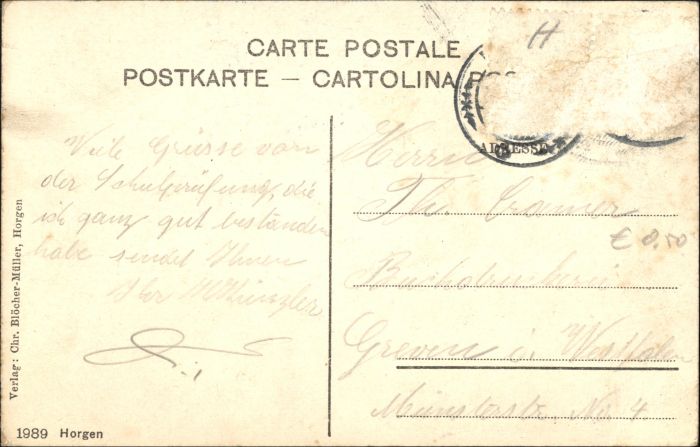 CARTE POSTALE
POSTKARTE — CARTOLINA POS
H
XII
ADRESSE
Viele Grüsse von
der Schulprüfung, die
ich ganz gut bestanden
habe sendet Ihnen
Ihr Künzler
Herrn
Th. Cramer
€ 0,50
Buchdruckerei
Greven i. Westfalen
Münsterstr. No. 4
Verlag: Chr. Blöcher-Müller, Horgen
1989 Horgen